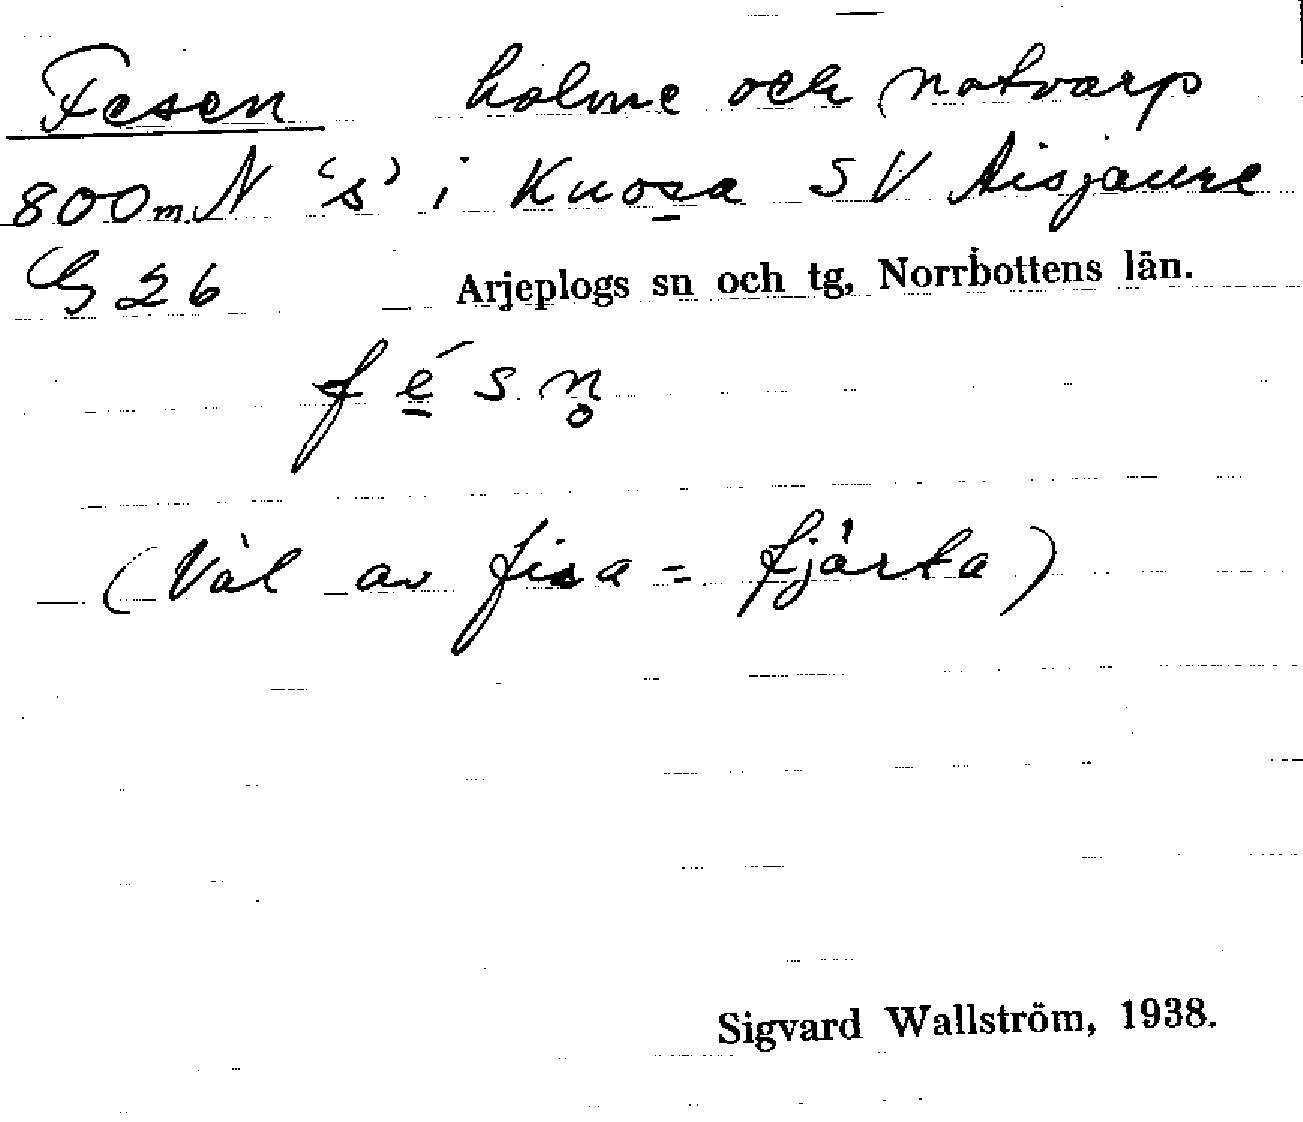 Fesen holme och notvarp
800 m N 's' i Kuosa SV Aisjaure
G 26 Arjeplogs sn och tg, Norrbottens län.
f é̱ s n̥
(Väl av fisa = fjärta)
Sigvard Wallström, 1938.